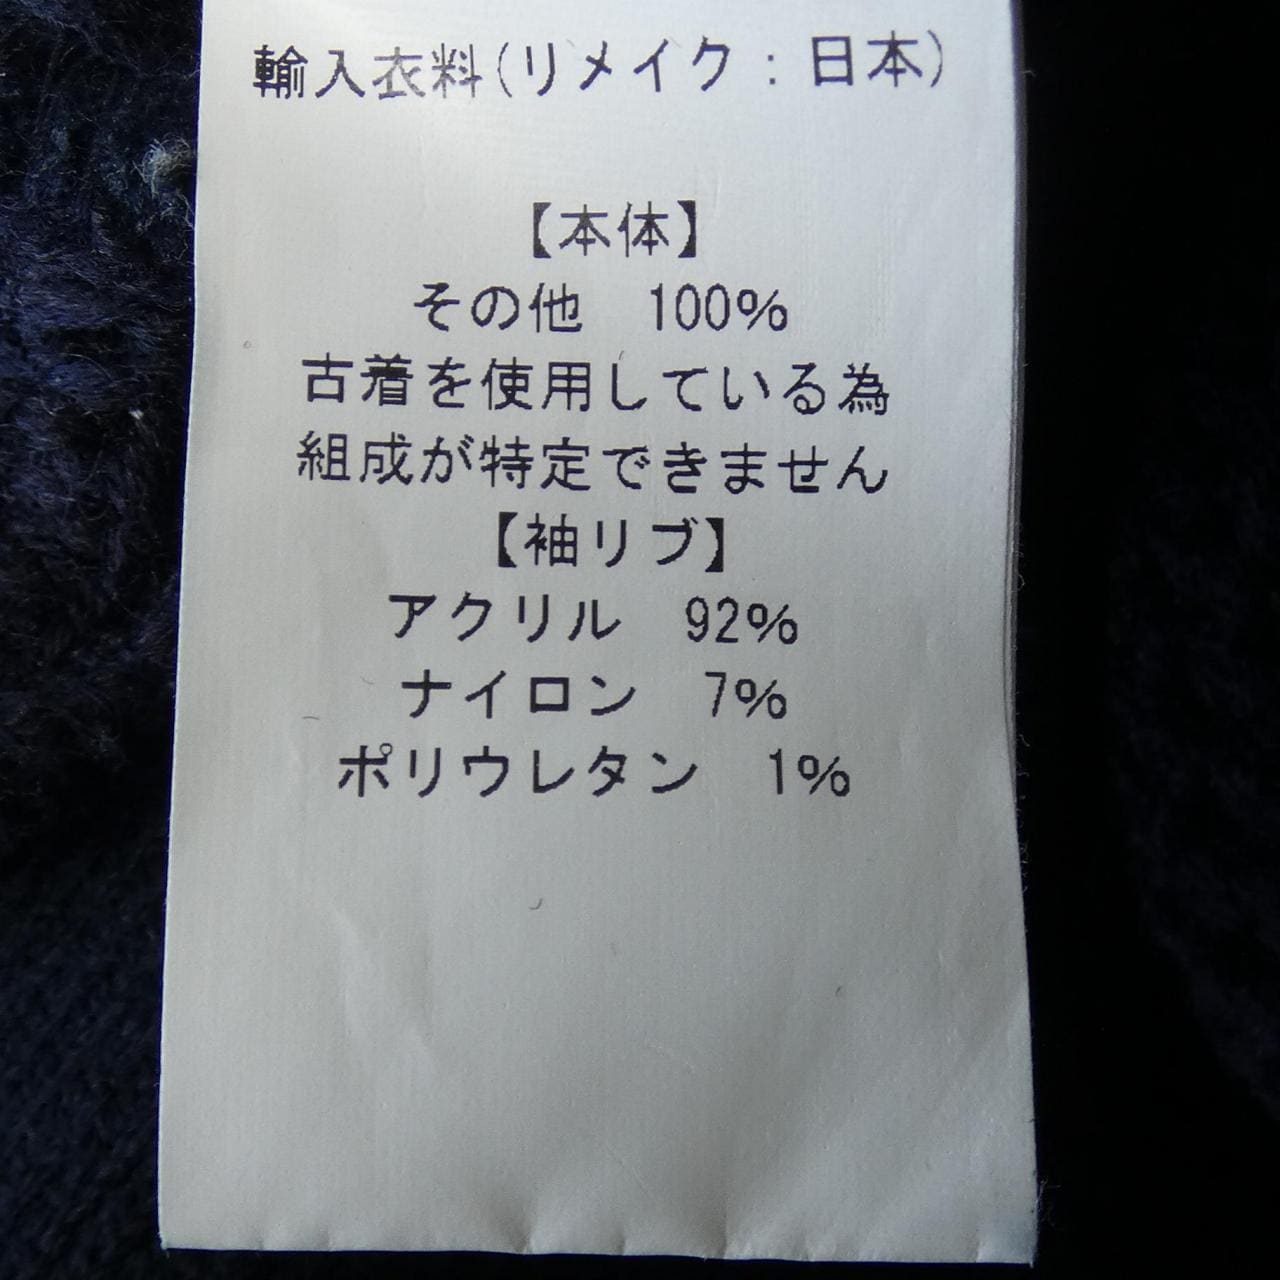 輸入衣料(リメイク:日本)
【本体】
その他 100%
古着を使用している為
組成が特定できません
【袖リブ】
アクリル 92%
ナイロン 7%
ポリウレタン 1%